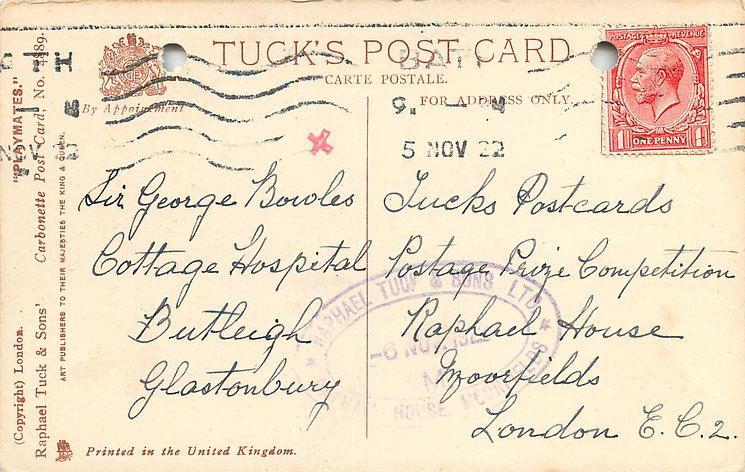 TUCK'S POST CARD
CARTE POSTALE.
By Appointment
FOR ADDRESS ONLY.
BATH
5 NOV 22
POSTAGE REVENUE
ONE PENNY
Sir George Bowles
Cottage Hospital
Butleigh
Glastonbury
Tucks Postcards
Postage Prize Competition
Raphael House
Moorfields
London E.C.2.
RAPHAEL TUCK & SONS LTD
-6 NOV. 192
RAPHAEL HOUSE, MOORFIELDS
(Copyright) London.
"PLAYMATES."
Raphael Tuck & Sons' Carbonette Post Card, No. 4489.
ART PUBLISHERS TO THEIR MAJESTIES THE KING & QUEEN.
Printed in the United Kingdom.